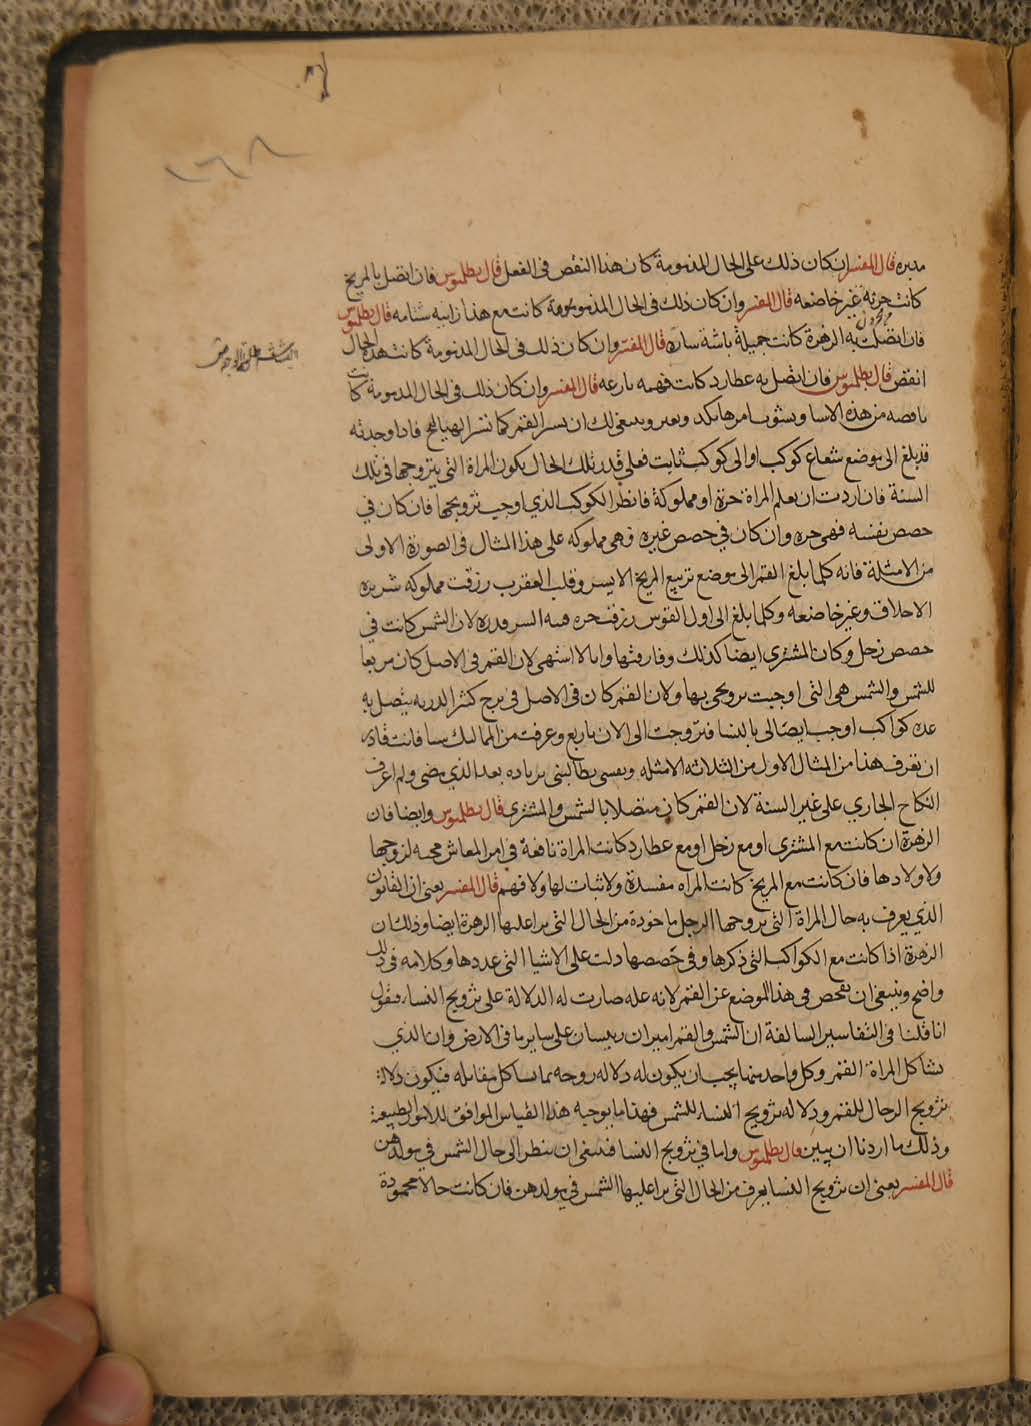 ١٦٨
مدبره قال المفسر ان كان ذلك على الحال المذمومة كان هذا النقص في الفعل قال بطلميوس فان اتصل بالمريخ
كانت جريئة غير خاضعه قال المفسر وان كان ذلك في الحال المذمومة كانت مع هذا زانيه شتامه قال بطلميوس
فان اتصلت به الزهرة كانت جميلة باشة سارة قال المفسر وان كان ذلك في الحال المذمومة كانت هذه الحال
انقص قال بطلميوس فان اتصل به عطارد كانت فهمه بارعه قال المفسر وان كان ذلك في الحال المذمومة كانت
ناقصه من هذه الاشيا وينبغي لك ان تسير القمر كما تسير الهيلاج فاذا وجدته
قد بلغ الى موضع شعاع كوكب او الى كوكب ثابت فعلى قدر تلك الحال يكون المراة التي يتزوجها في تلك
السنة فان اردت ان تعلم المراة حرة او مملوكة فانظر الكوكب الذي اوجب تزويجها فان كان في
حصص نفسه فهي حره وان كان في حصص غيره فهي مملوكه على هذا المثال في الصورة الاولى
من الامثلة فانه كلما بلغ القمر الى موضع تربيع المريخ الايسر وقلب العقرب رزقت مملوكه شريره
الاخلاق وغير خاضعه وكلما بلغ الى اول القوس رزقت حره لان الشمس كانت في
حصص زحل وكان المشتري ايضا كذلك وفارقتها وانا لا اشتهي لان القمر في الاصل كان مربعا
للشمس والشمس هي التي اوجبت تزويجي بها ولان القمر كان في الاصل في برج كثير الذريه يتصل به
عدة كواكب اوجب ايصالي بالنسا فتزوجت الى الان باربع وعرفت من المماليك ستا فانت قادر
ان تعرف هذا من المثال الاول من الثلاثه الامثله ونفسي تطالبني بزياده بعد الذي مضى ولم اعرف
النكاح الجاري على غير السنة لان القمر كان متصلا بالشمس والمشتري قال بطلميوس وايضا فان
الزهرة ان كانت مع المشتري او مع زحل او مع عطارد كانت المراة نافعة في امر المعاش محبه لزوجها
ولاولادها فان كانت مع المريخ كانت المراه مفسدة ولا ثبات لها ولا فهم قال المفسر يعني ان القانون
الذي يعرف به حال المراة التي يتزوجها الرجل ماخوذة من الحال التي يرا عليها الزهرة ايضا وذلك ان
الزهرة اذا كانت مع الكواكب التي ذكرها وفي حصصها دلت على الاشيا التي عددها وكلامه في ذلك
واضح وينبغي ان نفحص في هذا الموضع عن القمر لانه عله صارت له الدلالة على تزويج النساء فنقول
انا قلنا في التفاسير السالفة ان الشمس والقمر اميران رييسان على ساير ما في الارض وان الذي
يشاكل المراة القمر وكل واحد منهما يجب ان يكون له دلاله زوجه مما يشاكل مقابله فيكون دلالة
تزويج الرجال للقمر ودلاله تزويج النساء للشمس فهذا ما يوجبه هذا القياس الموافق للامور الطبيعية
وذلك ما اردنا ان نبين قال بطلميوس واما في تزويج النسا فينبغي ان ينظر الى حال الشمس في مولدهن
قال المفسر يعني ان تزويج النسا يعرف من الحال التي يرا عليها الشمس في مولدهن فان كانت حالا محمودة